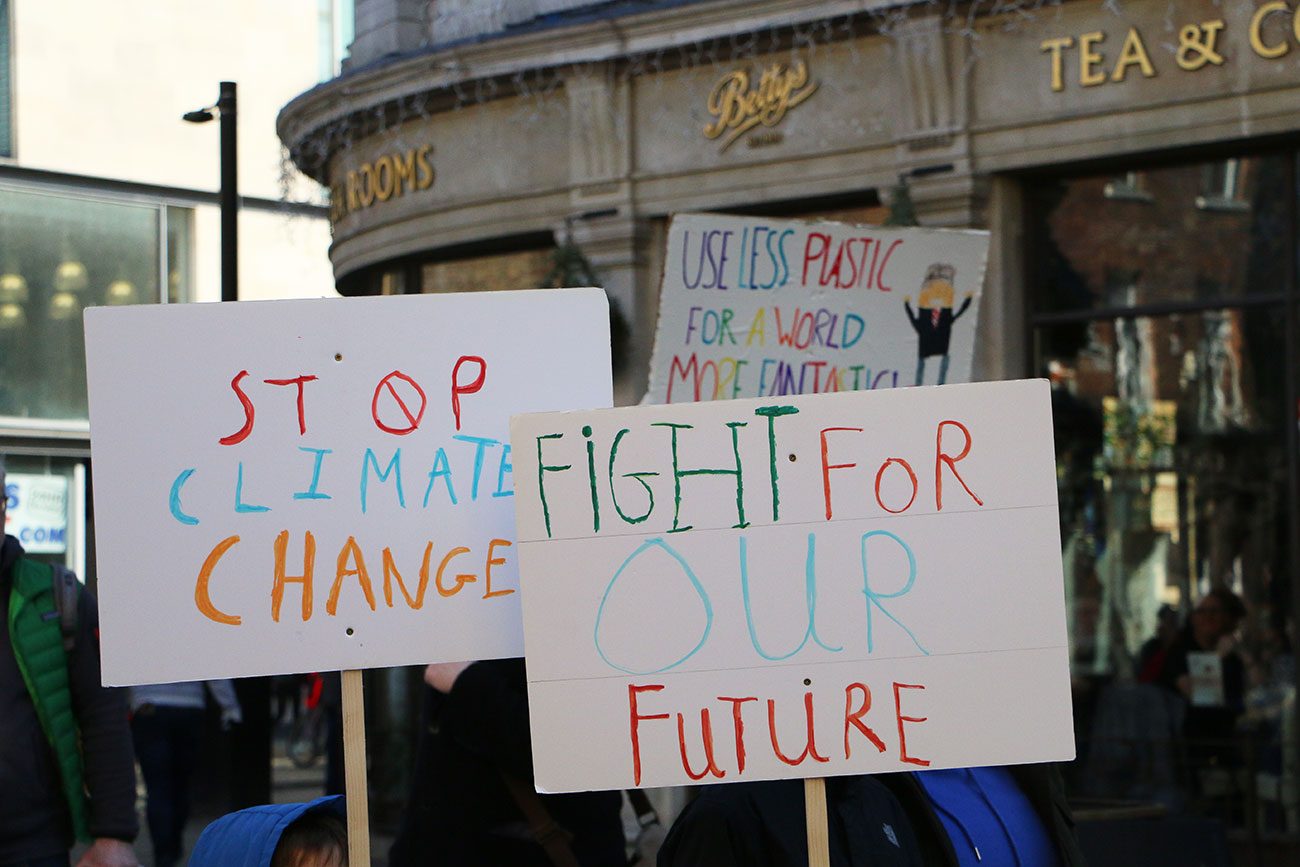 TEA & CO
Bettys
ROOMS
USE LESS PLASTIC
FOR A WORLD
MORE FANTASTIC!
STOP
CLIMATE
CHANGE
FIGHT FOR
OUR
FUTURE
.COM